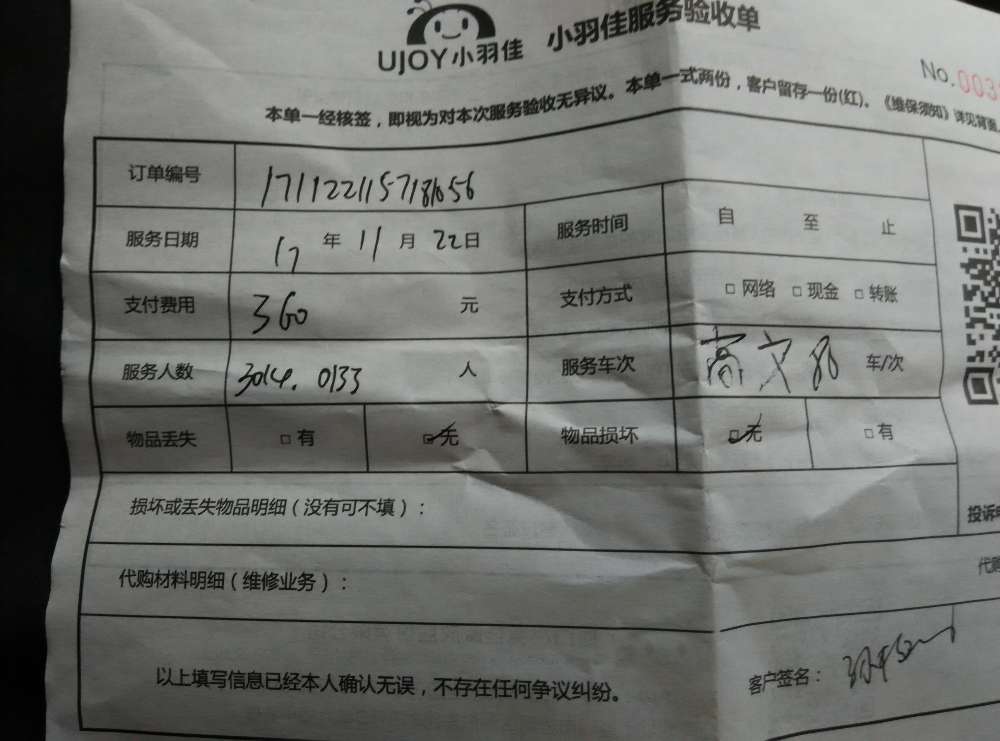 UJOY小羽佳 小羽佳服务验收单
No.003
本单一经核签，即视为对本次服务验收无异议。本单一式两份，客户留存一份(红)。《维保须知》详见背面
订单编号 171122115718656
服务日期 17 年 11 月 22 日 服务时间 自 至 止
支付费用 360 元 支付方式 □ 网络 □ 现金 □ 转账
服务人数 3014. 0133 人 服务车次 车/次
物品丢失 □ 有 ☑ 无 物品损坏 ☑ 无 □ 有
损坏或丢失物品明细（没有可不填）：
投诉
代购材料明细（维修业务）：
代购
以上填写信息已经本人确认无误，不存在任何争议纠纷。
客户签名：